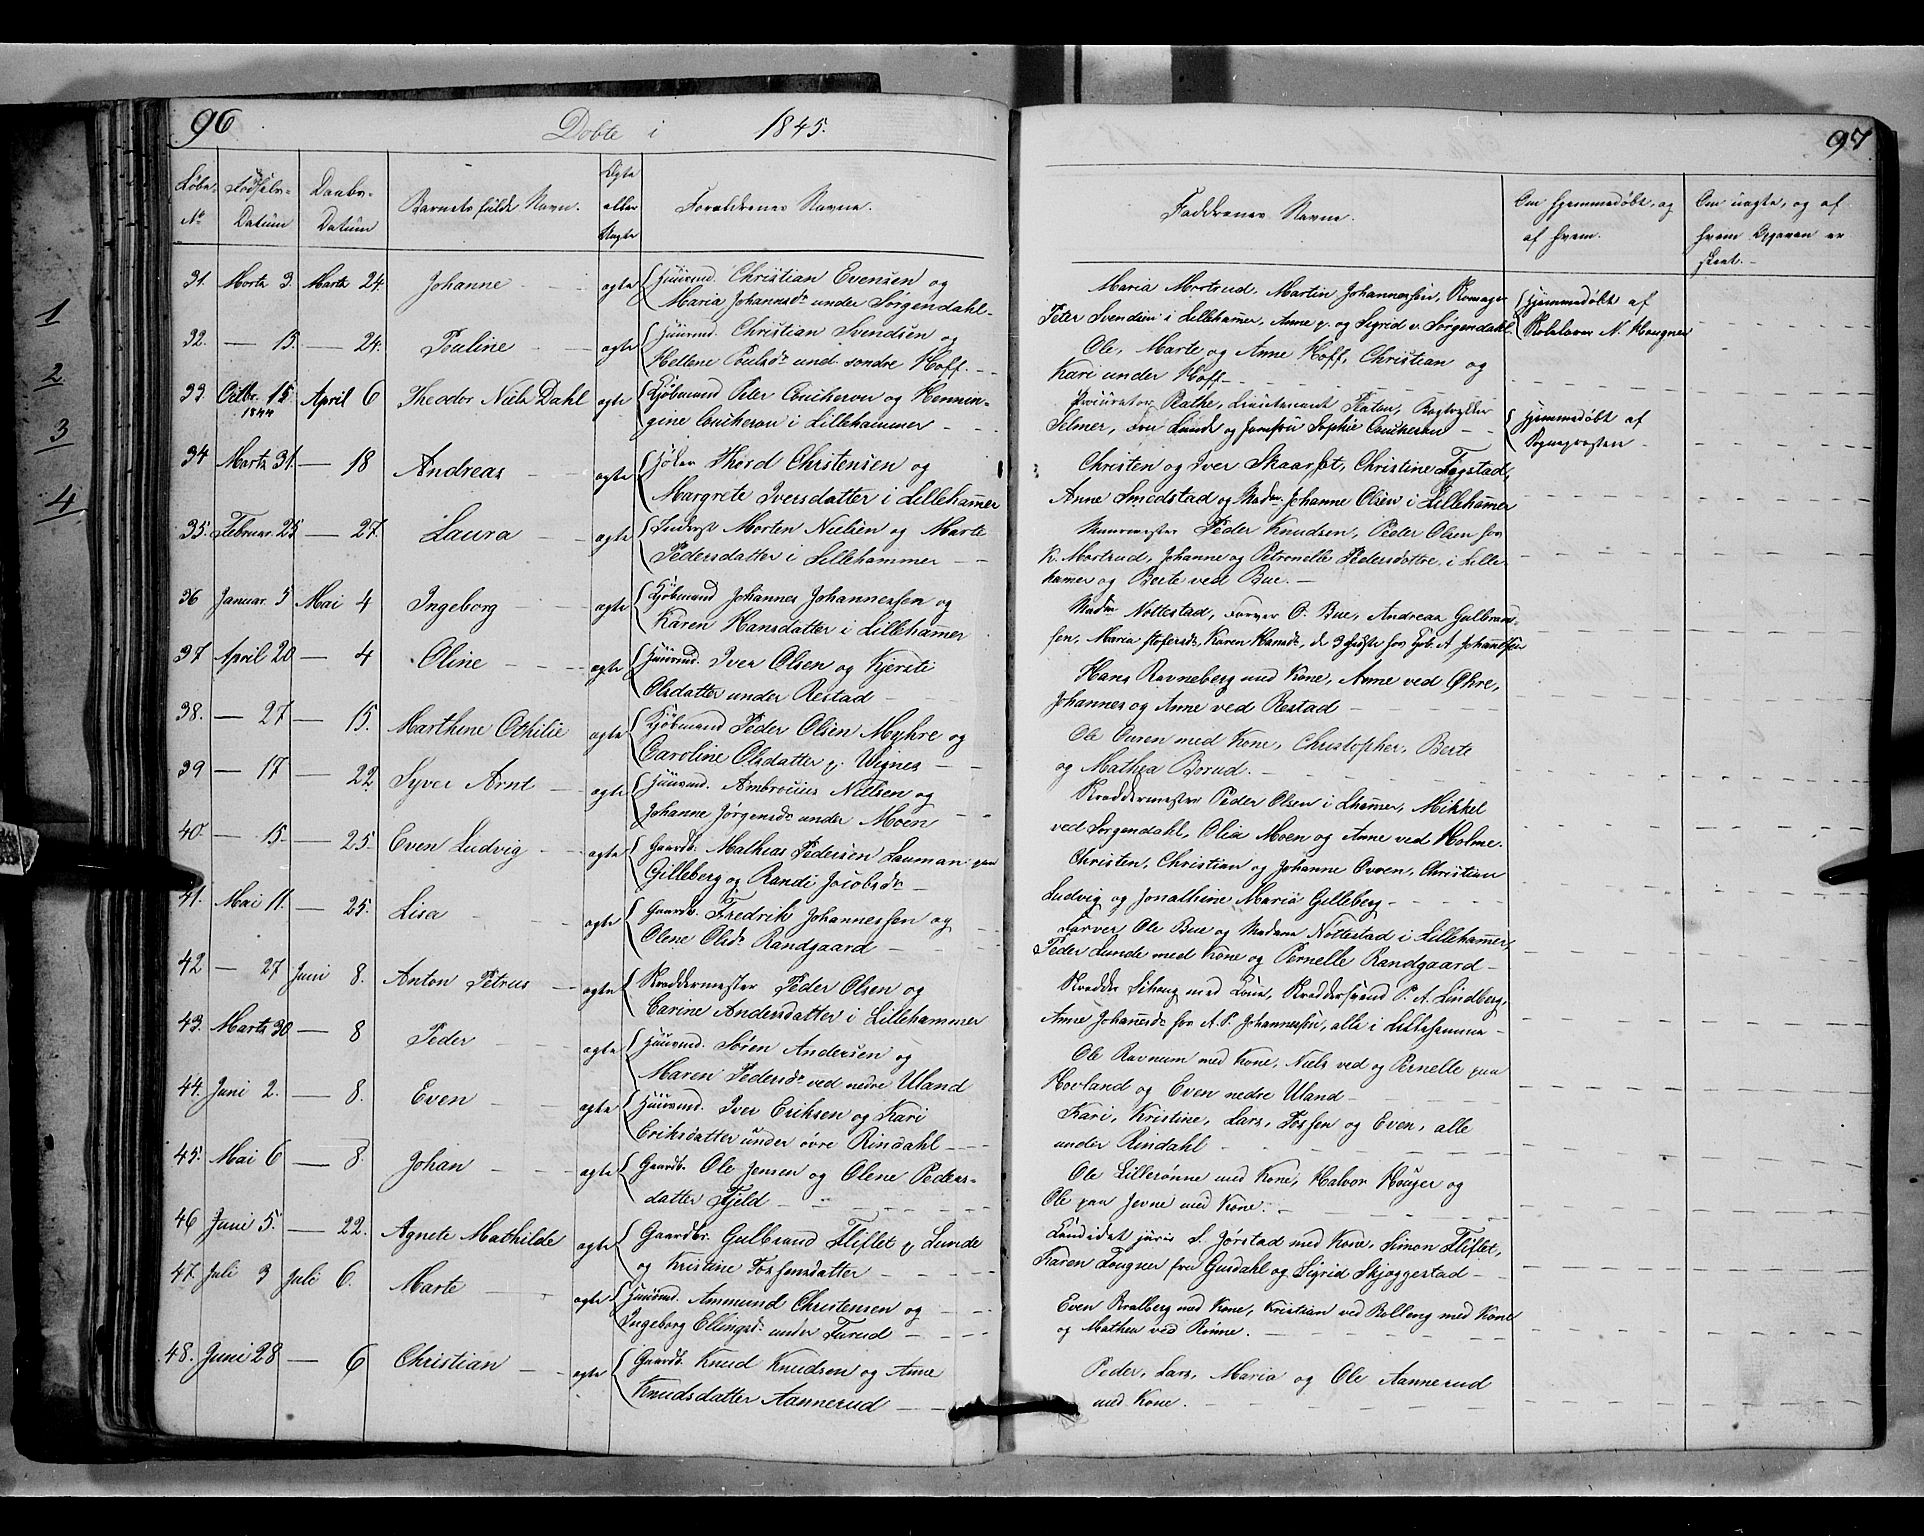 96
Døbte i 1845.
Løbe- No
Fødsels- Datum
Daabs- Datum
Barnets fulde Navn.
Ægte eller Uægte
Forældrenes Navne.
31. Marts 3. Marts 24. Johanne ægte Huusmd. Christian Evensen og
Maria Johannesdr under Sørgendahl
32. — 15. — 24. Pouline ægte Huusmd. Christian Svendsen og
Hellene Poulsdr und. søndre Hoff.
33. Octbr. 15 1844 April 6 Theodor Niels Dahl ægte Kjøbmand Peter Coucheron og Hennin-
gine Coucheron i Lillehammer
34 Marts 31. — 18 Andreas ægte Thord Christensen og
Margrete Iversdatter i Lillehamer
35. Februar. 25 — 27. Laura ægte Inderst Morten Nielsen og Marte
Pedersdatter i Lillehammer
36 Januar. 5 Mai 4 Ingeborg ægte Kjøbmand Johannes Johannessen og
Karen Hansdatter i Lillehamer
37 April 20 — 4 Oline ægte Huusmd. Iver Olsen og Kjersti
Olsdatter under Restad
38. — 27 — 15. Marthine Othilie ægte Kjøbmand Peder Olsen Myhre og
Caroline Olsdatter p. Vignes
39 — 17 — 22 Syver Arnt ægte Huusmd. Ambrosius Nielsen og
Johanne Jørgensdr under Moen
40. — 15. — 25. Even Ludvig ægte Gaardb. Mathias Pedersen Lauman paa
Gilleberg og Randi Jacobsdr
41. Mai 11. — 25. Lisa ægte Gaardb. Fredrik Johannessen og
Olene Olsdr Randgaard
42 — 27 Juni 8. Anton Petrus ægte Skræddermester Peder Olsen og
Carine Andersdatter i Lillehammer
43. Marts 30 — 8 Peder ægte Huusmd. Søren Andersen og
Maren Pedersdr ved nedre Uland
44. Juni 2. — 8. Even ægte Huusmd. Iver Eriksen og Kari
Eriksdatter under øvre Rindahl
45. Mai 6 — 8. Johan ægte Gaardb. Ole Jensen og Olene Peders-
datter Fjeld
46 Juni 5. — 22. Agnete Mathilde ægte Gaardbr. Gulbrand Fliflet p Lunde
og Kristine Tostensdatter
47. Juli 3 Juli 6. Marte ægte Huusmd. Ammund Christensen og
Ingeborg Ellingsdr under Furud
48. Juni 28 — 6 Christian ægte Gaardb. Knud Knudsen og Anne
Knudsdatter Aannerud
97
Faddrenes Navne.
Om hjemmedøbt, og af hvem.
Om uægte, og af hvem Opgaven er skeet.
Maria Mortrud, Martin Johannessen, Skomager
Peter Svendsen i Lillehamer, Anne p. og Sigrid v. Sørgendahl
Hjemmedøbt af
Skolelærer N. Haugner
Ole, Marte og Anne Hoff, Christian og
Kari under Hoff
Procurator Rathe, Lieutenant Platou,
Selmer, Lunde og Jomfru Sophie Coucheron
Hjemmedøbt af
Sognepresten
Christen og Iver Skaarset, Christine Fogstad,
Anne Smidstad og Madm. Johanne Olsen i Lillehamer
Muurmester Peder Knudsen, Peder Olsen hos
K. Mortrud, Johanne og Petronelle Pedersdøttre, i Lille-
hamer og Berte ved Bue.
Madm Nottestad, Farver O. Bue, Andreas Gulbrand-
sen, Maria Karen Hansdr, de 3 sidste hos Kjb. A Johannessen
Hans Ravneberg med Kone, Anne ved Økre,
Johannes og Anne ved Restad
Ole Ouren med Kone, Christopher, Berte
og Mathea Borud.
Skreddermester Peder Olsen i Lhamer, Mikkel
ved Sørgendahl, Olia Moen og Anne ved Holme.
Christen, Christian og Johanne Ovren, Christian
Ludvig og Jonathine Maria Gilleberg
Farver Ole Bue og Madam Nottestad i Lillehammer,
Peder Lunde med Kone og Pernelle Randgaard
Skredder med Kone, Skreddersvend P. A. Lindberg,
Anne Johannesdr hos A. P. Johannessen, alle i Lillehammer
Ole Ravnum med Kone, Niels ved og Pernelle paa
Hovland og Even nedre Uland
Kari, Kristine, Lars, Tosten og Even, alle
under Rindahl
Ole Lillerønne med Kone, Halvor Hauger og
Ole paa Jevne med Kone.
Candidat juris S. Jørstad med Kone, Simon Fliflet,
Karen Fougner fra Gusdahl og Sigrid Skjæggestad
Even Bralberg med Kone, Kristian ved Rolleng med Kone
og Mathea ved Rønne.
Peder, Lars, Maria og Ole Aannerud
med Kone.
1
2
3
4